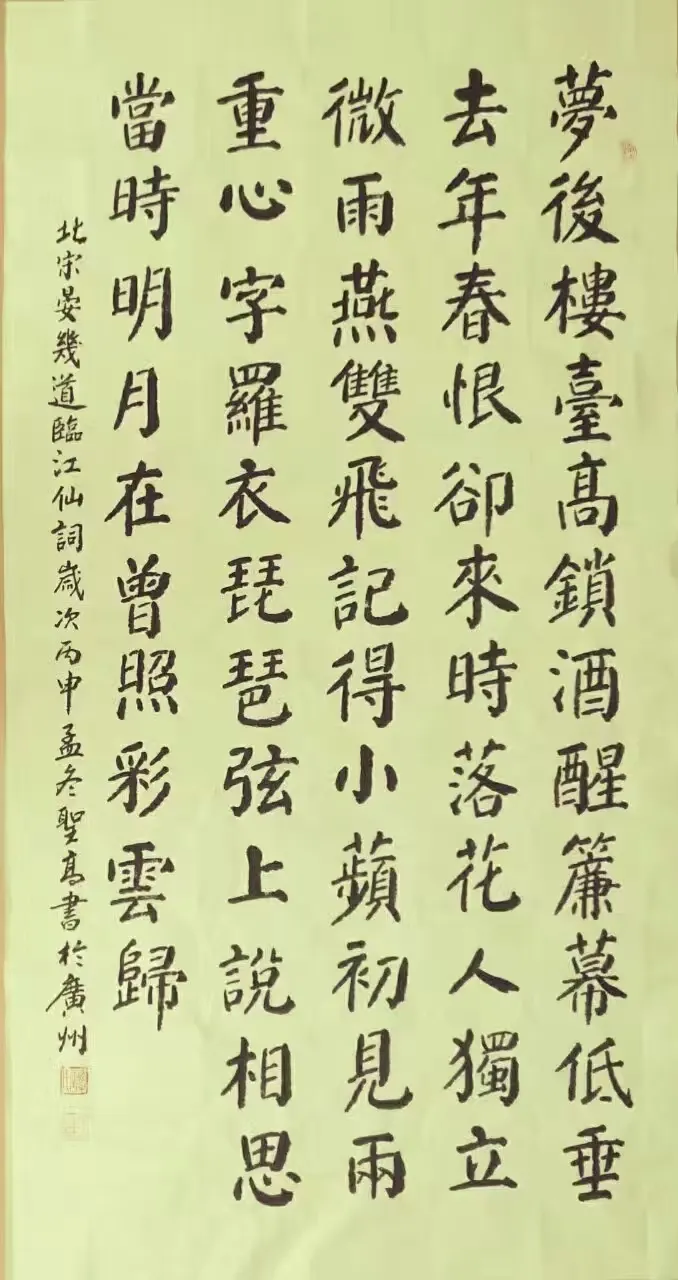 夢後樓臺高鎖酒醒簾幕低垂
去年春恨卻來時落花人獨立
微雨燕雙飛記得小蘋初見兩
重心字羅衣琵琶弦上說相思
當時明月在曾照彩雲歸
北宋晏幾道臨江仙詞歲次丙申孟冬聖高書於廣州